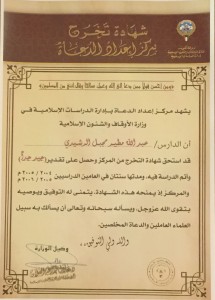 شهادة تخرج
مركز إعداد الدعاة
ومن أحسن قولاً ممن دعا إلى الله وعمل صالحاً وقال إنني من المسلمين
يشهد مركز إعداد الدعاة بإدارة الدراسات الإسلامية في
وزارة الأوقاف والشئون الإسلامية
أن الدارس/ عبد الله مطير الرشيدي
قد استحق شهادة التخرج من المركز وحصل على تقدير (جيد جداً)
وأتم الدراسة فيه، ومدتها سنتان في العامين الدراسيين
والمركز إذ يمنحه هذه الشهادة، يتمنى له التوفيق ويوصيه
بتقوى الله عزوجل، ويسأله سبحانه وتعالى أن يسلك به سبيل
العلماء العاملين والدعاة المخلصين.
والله ولي التوفيق،،
وكيل الوزارة